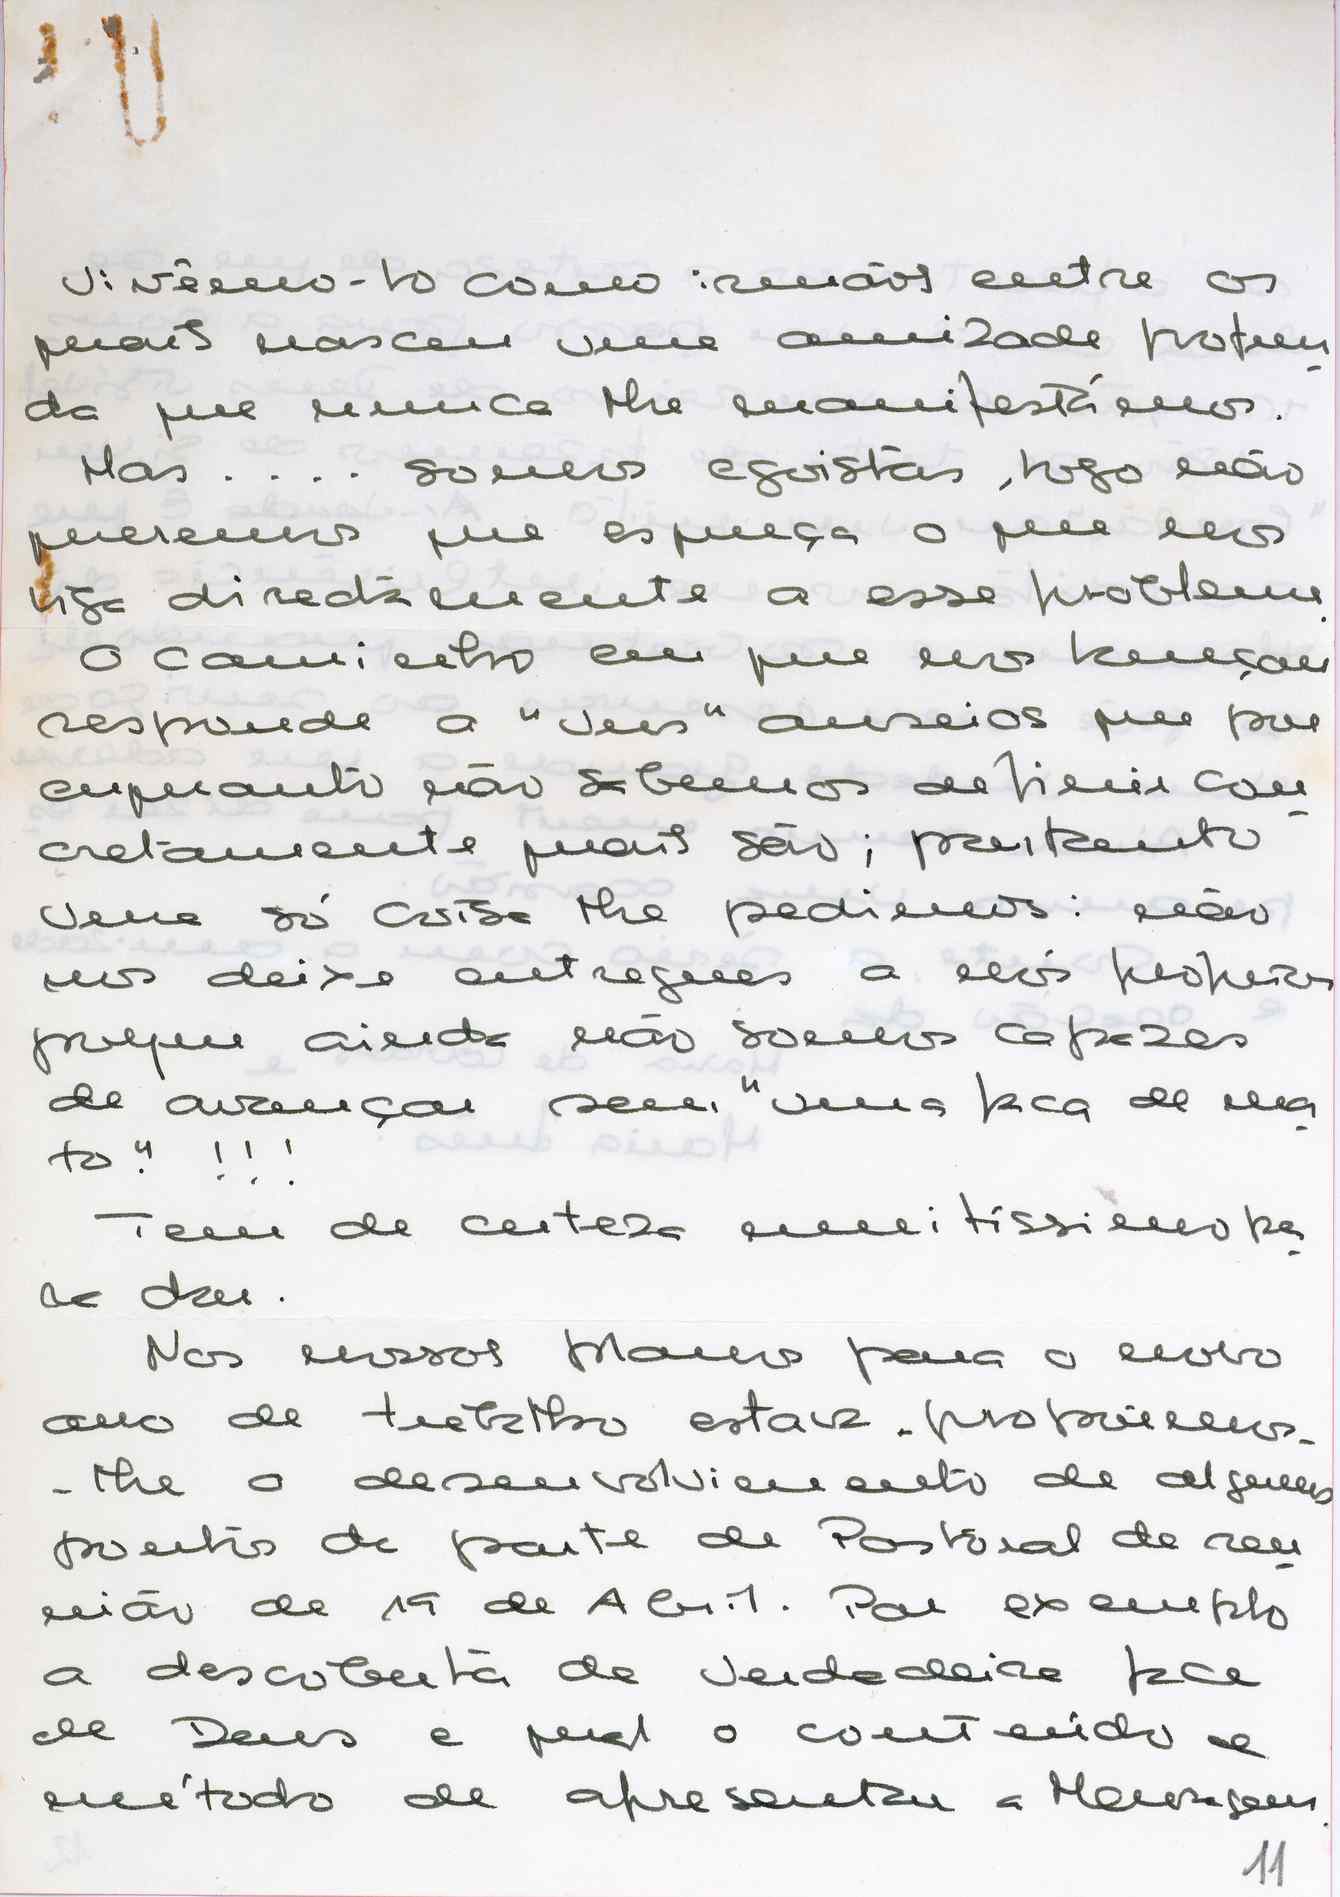 Vivêmo-lo como irmãos entre os
quais nasceu uma amizade profun
da que nunca lhe manifestámos.
Mas .... somos egoistas, logo não
queremos que esqueça o que nos
liga diredtamente a esse problema.
O caminho em que nos lançou
responde a "uns" anseios que por
enquanto não sabemos definir con
cretamente quais são; portanto
uma só coisa lhe pedimos: não
nos deixe entregues a nós próprios
porque ainda não somos capazes
de avançar sem "uma faca de ma
to" !!!
Tem de certeza muitissimo pa
ra dar.
Nos nossos planos para o novo
ano de trabalho estava - propúnhamos-
-lhe o desenvolvimento de alguns
pontos da parte de Pastoral de reu
nião de 19 de Abril. Por exemplo
a descoberta da verdadeira face
de Deus e qual o conteúdo e
método de apresentar a Mensagem.
11